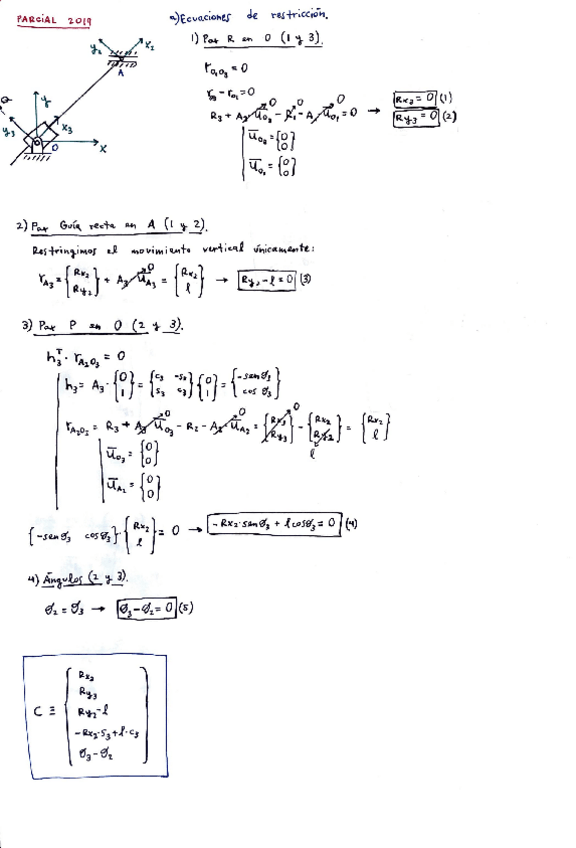 PARCIAL 2019
a) Ecuaciones de restricción.
1) Par R en O (1 y 3).
y₂ x₂
A
y
y₃ x₃
O x
r_O₁O₃ = 0
r_O₃ - r_O₁ = 0
R₃ + A₃ū_O₃ - R₁ - A₁ū_O₁ = 0 → Rx₃ = 0 (1)
Ry₃ = 0 (2)
ū_O₃ = {0 0}
ū_O₁ = {0 0}
2) Par Guía recta en A (1 y 2).
Restringimos el movimiento vertical únicamente:
r_A₃ = {Rx₂ Ry₂} + A₃ ū_A₃ = {Rx₂ l} → Ry₂ - l = 0 (3)
3) Par P en O (2 y 3).
h₃ᵀ · r_A₂O₃ = 0
h₃ = A₃ · {0 1} = {c₃ -s₃ s₃ c₃} {0 1} = {-senØ₃ cosØ₃}
r_A₂O₂ = R₃ + A₃ū_O₃ - R₂ - A₂ū_A₂ = {Rx₃ Ry₃} - {Rx₂ Ry₂} = {Rx₂ l}
l
ū_O₃ = {0 0}
ū_A₂ = {0 0}
{-senØ₃ cosØ₃} · {Rx₂ l} = 0 → -Rx₂·senØ₃ + l cosØ₃ = 0 (4)
4) Ángulos (2 y 3).
Ø₂ = Ø₃ → Ø₃ - Ø₂ = 0 (5)
Rx₃
Ry₃
C ≡ Ry₂ - l
-Rx₂·s₃ + l·c₃
Ø₃ - Ø₂